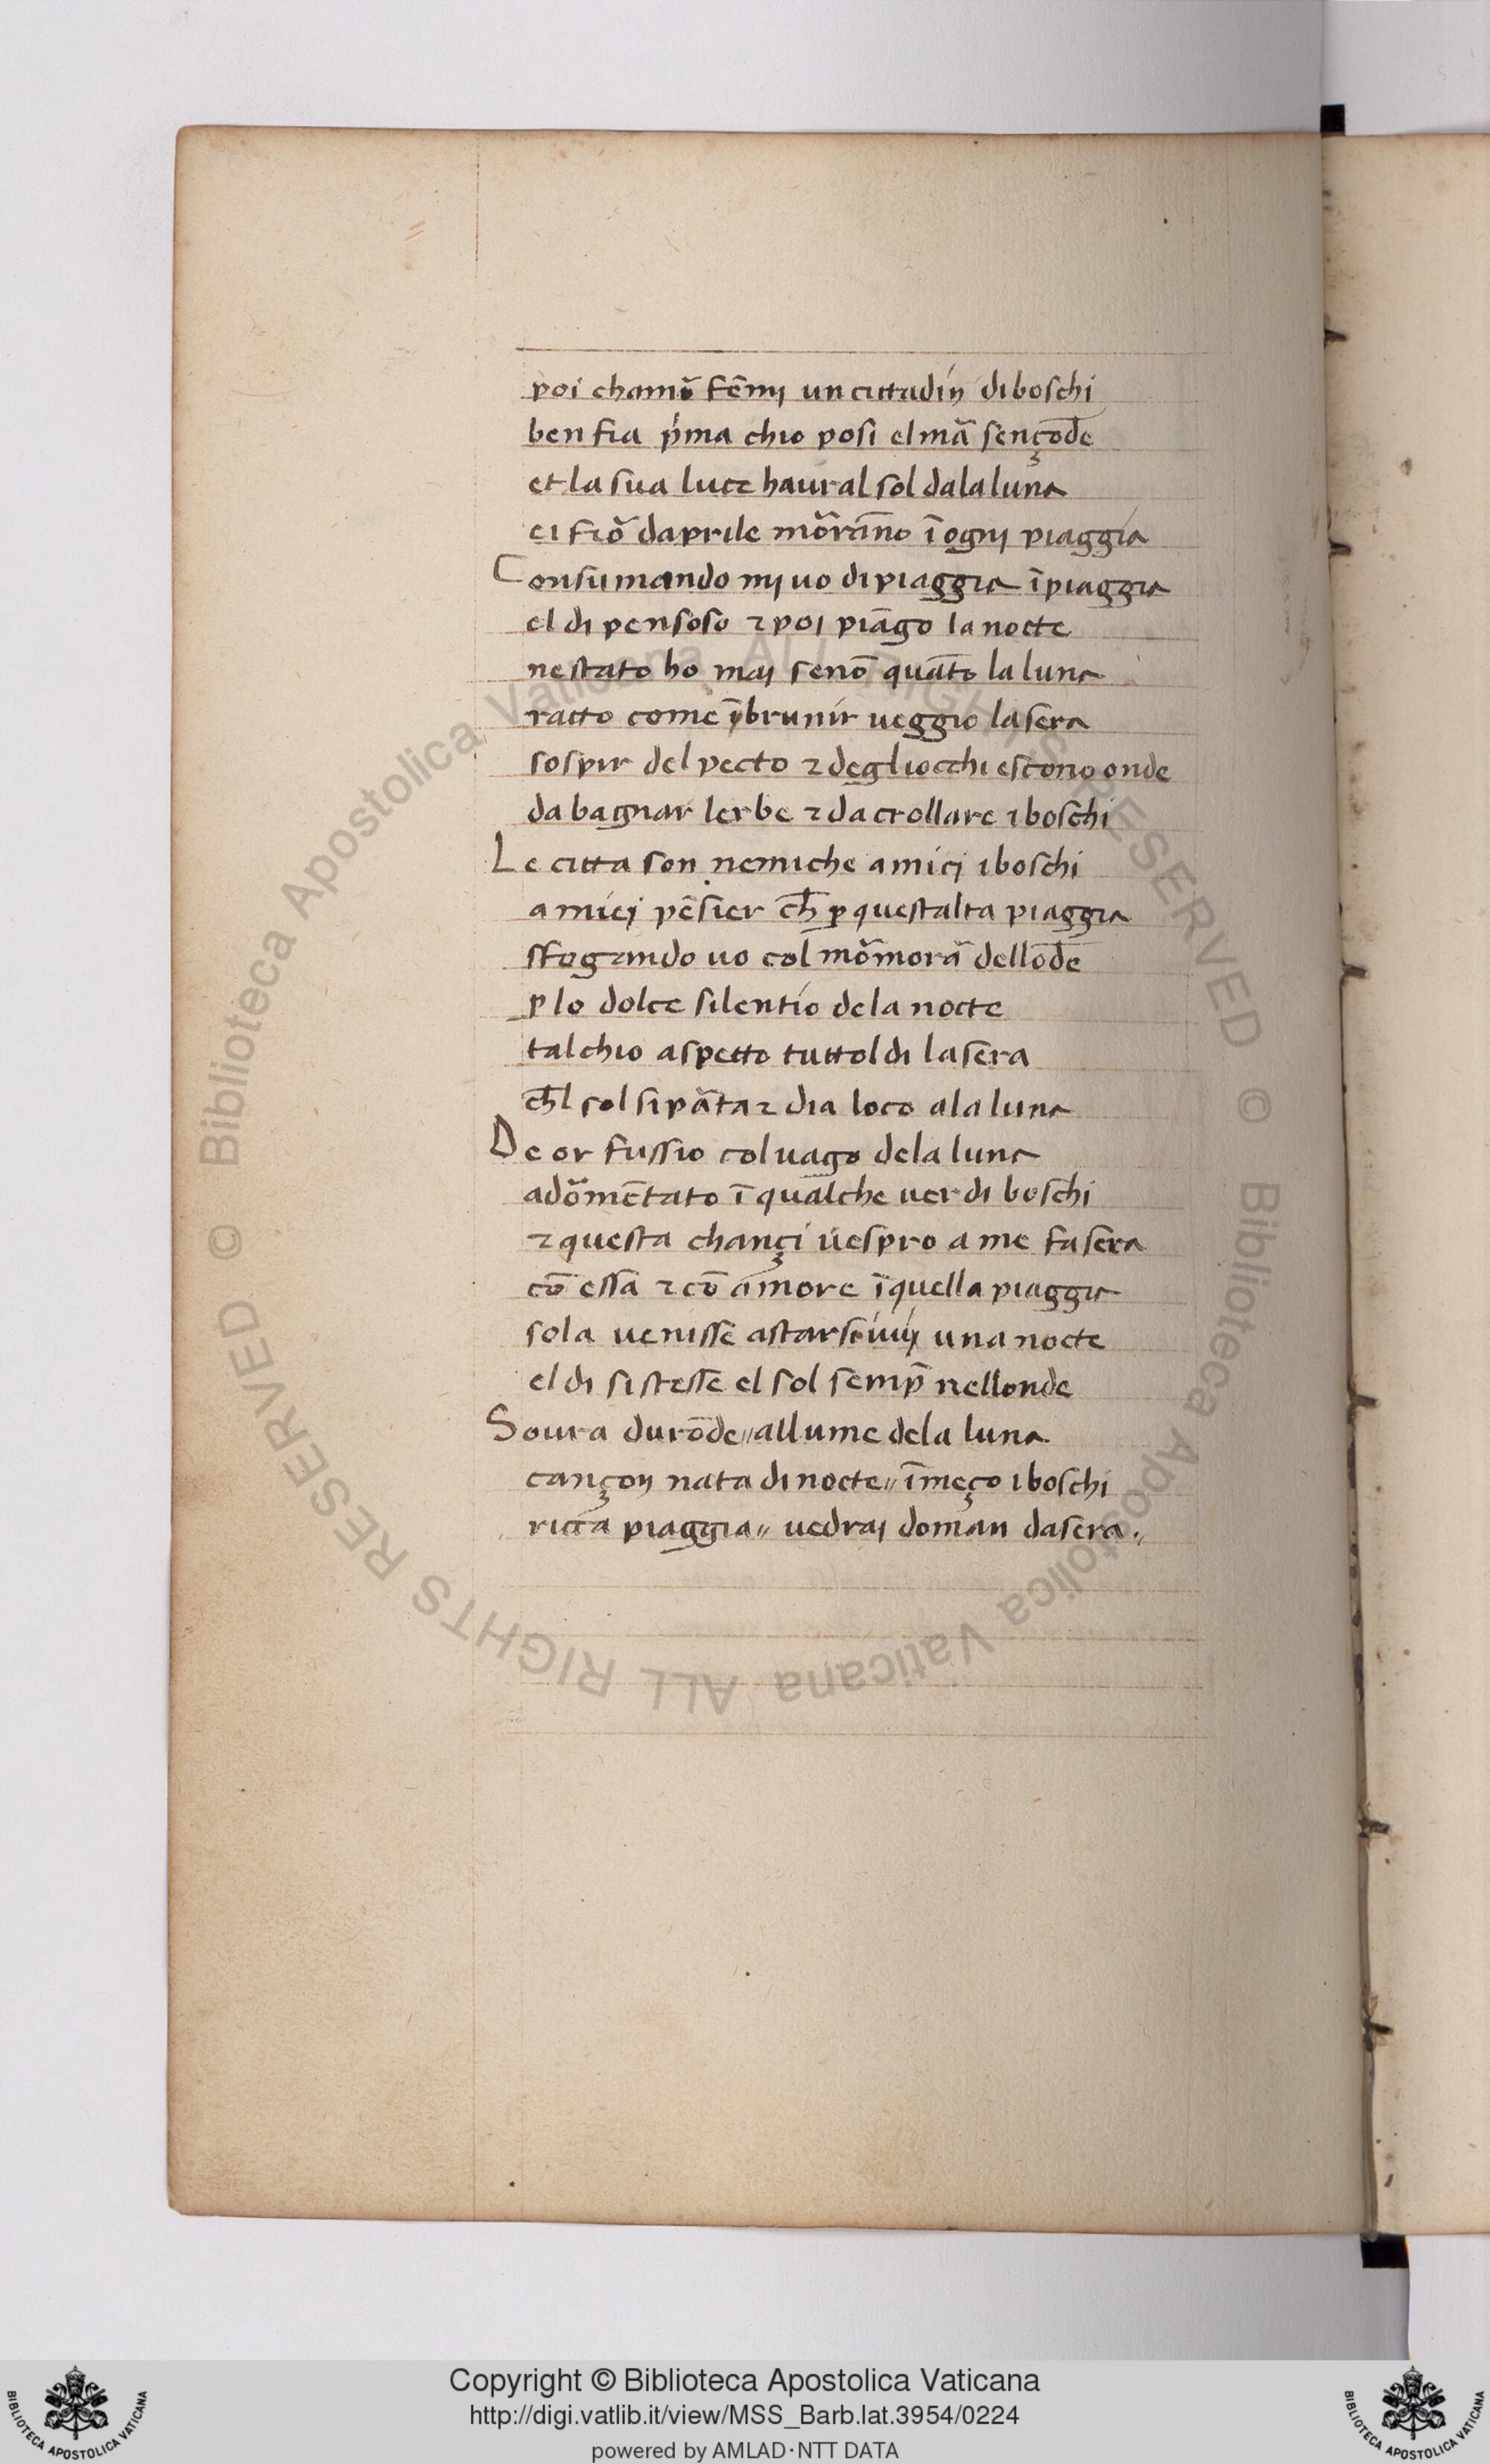 poi chamo᷑ fēmj un cittadin di boschi
ben fia pͥma chio posi el ma᷑ sençōde
et la sua luce haural sol dala luna
ei fio᷑ daprile mo᷑rāno ī ognj piaggia
Consumando mj uo di piaggia ī piaggia
el di pensoso ⁊ poj piāgo la nocte
ne stato ho maj senō quāto la luna
ratto come ībrunir ueggio la sera
sospir del pecto ⁊ degliocchi escono onde
da bagnar lerbe ⁊ da crollare i boschi
Le citta son nemiche amicj i boschi
amicj pēsier ch̄ ꝑ questalta piaggia
sfogando uo col mo᷑mora᷑ dellōde
ꝑ lo dolce silentio dela nocte
tal chio aspetto tuttol di la sera
ch̄l sol si pa᷑ta ⁊ dia loco ala luna
De or fussio col uago dela luna
ado᷑mētato ī qualche uerdi boschi
⁊ questa chançi uespro a me fa sera
cō essa ⁊ cō amore ī quella piaggia
sola uenisse astarse iuj una nocte
el di si stesse el sol semp̄ nellonde
Soura durōde〃 allume dela luna
cançon nata di nocte〃 ī meço i boschi
ricca piaggia〃 uedraj doman dasera.
Copyright © Biblioteca Apostolica Vaticana
http://digi.vatlib.it/view/MSS_Barb.lat.3954/0224
powered by AMLAD·NTT DATA
BIBLIOTECA APOSTOLICA VATICANA
BIBLIOTECA APOSTOLICA VATICANA
© Biblioteca Apostolica Vaticana ALL RIGHTS RESERVED
© Biblioteca Apostolica Vaticana ALL RIGHTS RESERVED